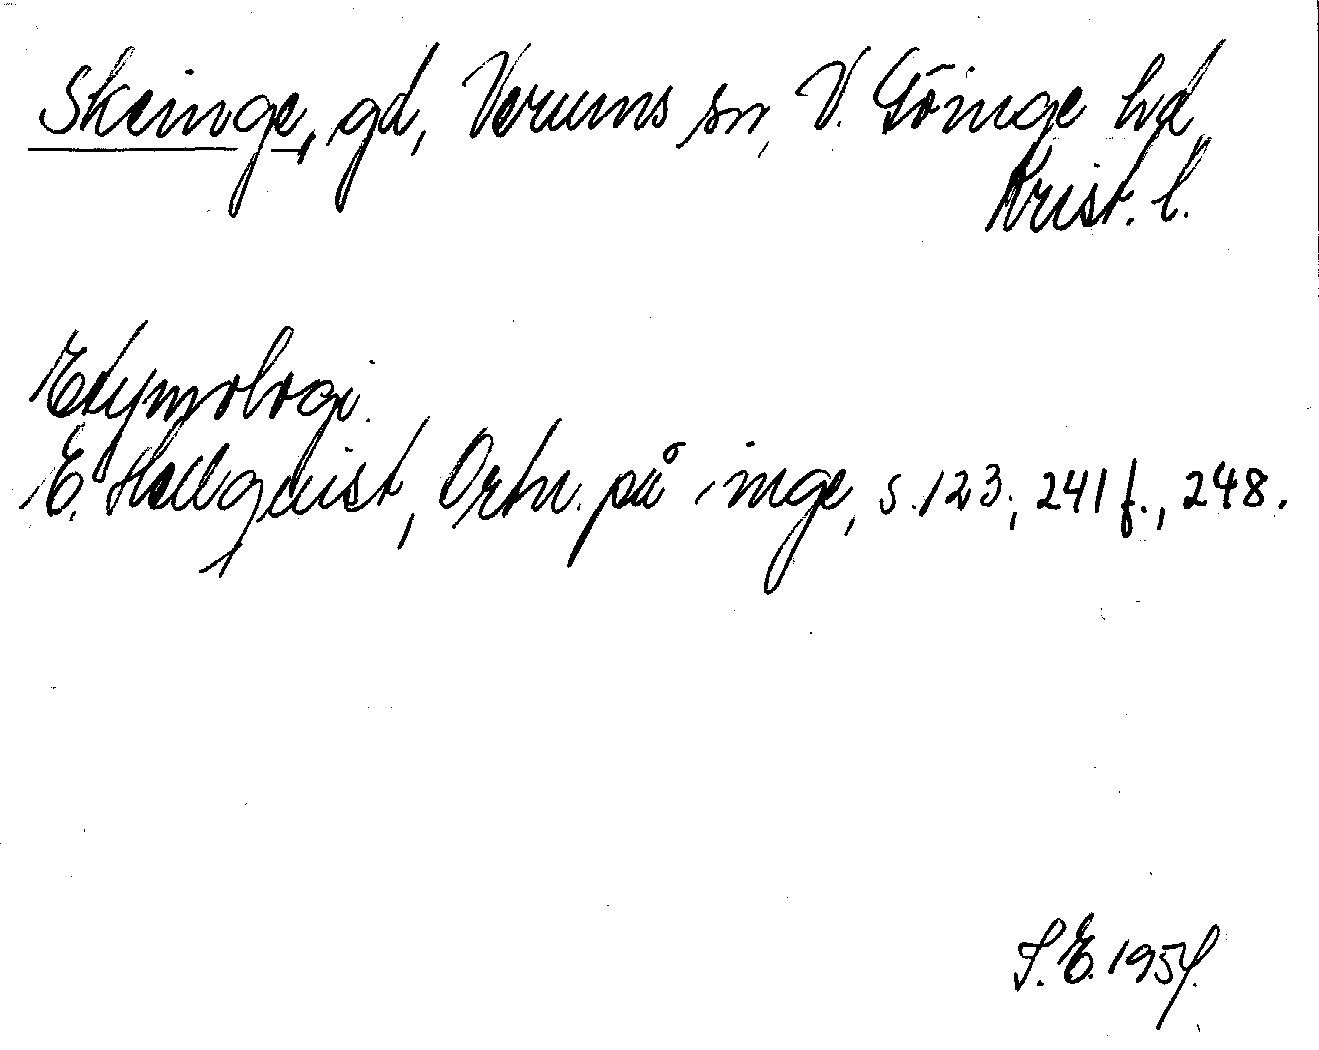 Skeinge, gd, Verums sn, V. Göinge hd,
Krist. l.
Etymologi.
E. Hellquist, Ortn. på -inge, s. 123, 241 f., 248.
S.E.